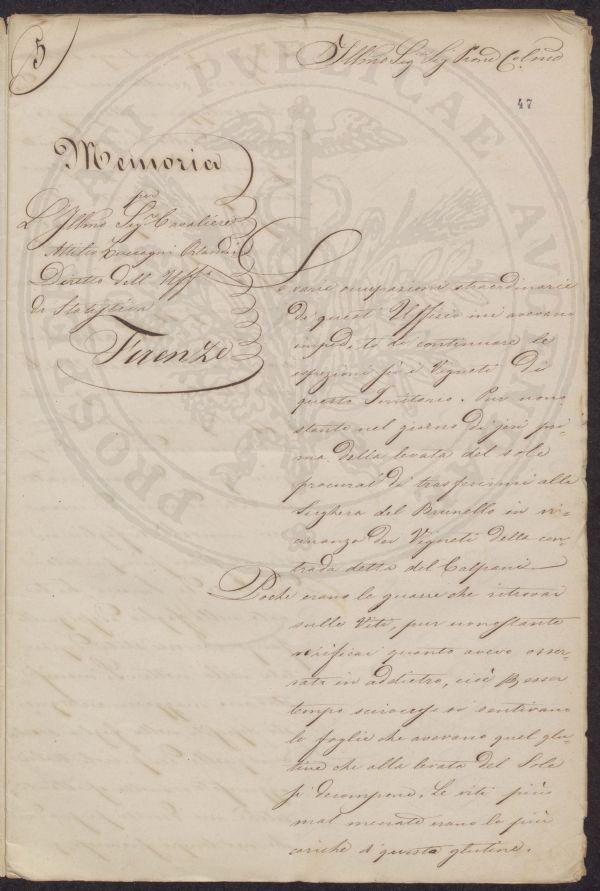 5
Illmo Sigr Sigr Prone Colmo
47
Memoria
per
L'Illmo Sigr Cavaliere
Attilio Zuccagni Orlandini
Direttr dell' Uffo
di Statistica
Firenze
Le varie occupazioni straordinarie
di quest' Uffizio mi avevano
impedito di continuare le
ispezioni su i Vigneti di
questo Territorio. Pur nono
stante nel giorno di jeri pri-
ma della levata del sole
procurai di trasferirmi alla
Sughera del Brunello in vi-
cinanza dei Vigneti della con-
trada detta del Calpani
Poche erano le guazze che ritrovai
sulle Viti, pur nonostante
verificai quanto avevo osser-
vato in addietro, cioè esser
tempo sciroccoso si sentivano
le foglie che avevano quel glu-
tine che alla levata del Sole
si decompone. Le viti più
mal menate erano le più
cariche di questo glutine.
PROSPERITATI PVBLICAE